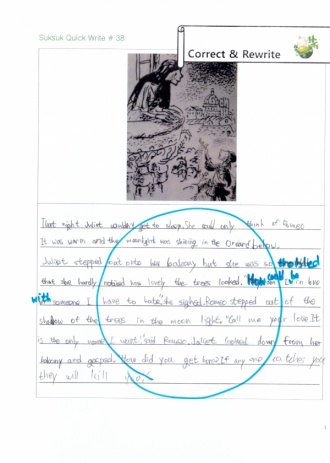 Suksuk Quick Write # 38
Correct & Rewrite
That night Juliet couldn't get to sleep. She could only think of Romeo
It was warm and the moonlight was shining in the Orcard below.
Juliet stepped out onto her balcony but she was so troubled
that she hardly noticed how lovely the trees looked. How could I be in love
with someone I have to hate," she sighed. Romeo stepped out of the
shadow of the trees in the moon light. "Call me your love It
is the only name I want," said Romeo. Juliet looked down from her
balcony and gasped. How did you get here? If any one catches you
they will kill you"